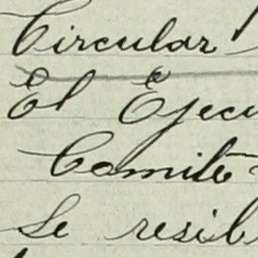 Circular
El Ejecu
Comité
Se resib